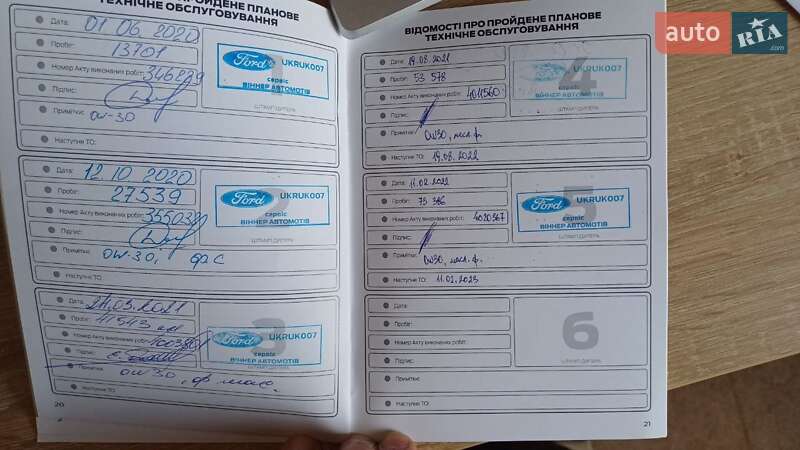 ПРО ПРОЙДЕНЕ ПЛАНОВЕ
ТЕХНІЧНЕ ОБСЛУГОВУВАННЯ
Дата: 01 06. 2020
Пробіг: 13701
Номер Акту виконаних робіт: 346239
Підпис:
Примітки: 0W-30
Наступне ТО:
1
Ford UKRUK007
сервіс
ВІННЕР АВТОМОТІВ
ШТАМП ДИЛЕРА
Дата: 12. 10 2020
Пробіг: 27539
Номер Акту виконаних робіт:
Підпис:
Примітки: 0W-30,
Наступне ТО:
2
Ford UKRUK007
сервіс
ВІННЕР АВТОМОТІВ
ШТАМП ДИЛЕРА
Дата: 03.2021
Пробіг: 41543
Номер Акту виконаних робіт:
Підпис:
Примітки: 0W 30,
3
Ford UKRUK007
сервіс
ВІННЕР АВТОМОТІВ
20
ВІДОМОСТІ ПРО ПРОЙДЕНЕ ПЛАНОВЕ
ТЕХНІЧНЕ ОБСЛУГОВУВАННЯ
Дата: 19.08.2021
Пробіг: 53 578
Номер Акту виконаних робіт: 4011560
Підпис:
Примітки: 0W30, мсл. ф.
Наступне ТО: 19.08.2022
4
ВІННЕР АВТОМОТІВ
ШТАМП ДИЛЕРА
Дата: 11.02.2022
Пробіг: 75 386
Номер Акту виконаних робіт: 4020367
Підпис:
Примітки: 0W30, мсл. ф.
Наступне ТО: 11.02.2023
5
Ford UKRUK007
сервіс
ВІННЕР АВТОМОТІВ
ШТАМП ДИЛЕРА
Дата:
Пробіг:
Номер Акту виконаних робіт:
Підпис:
Примітки:
Наступне ТО:
6
ШТАМП ДИЛЕРА
21
auto RIA .com